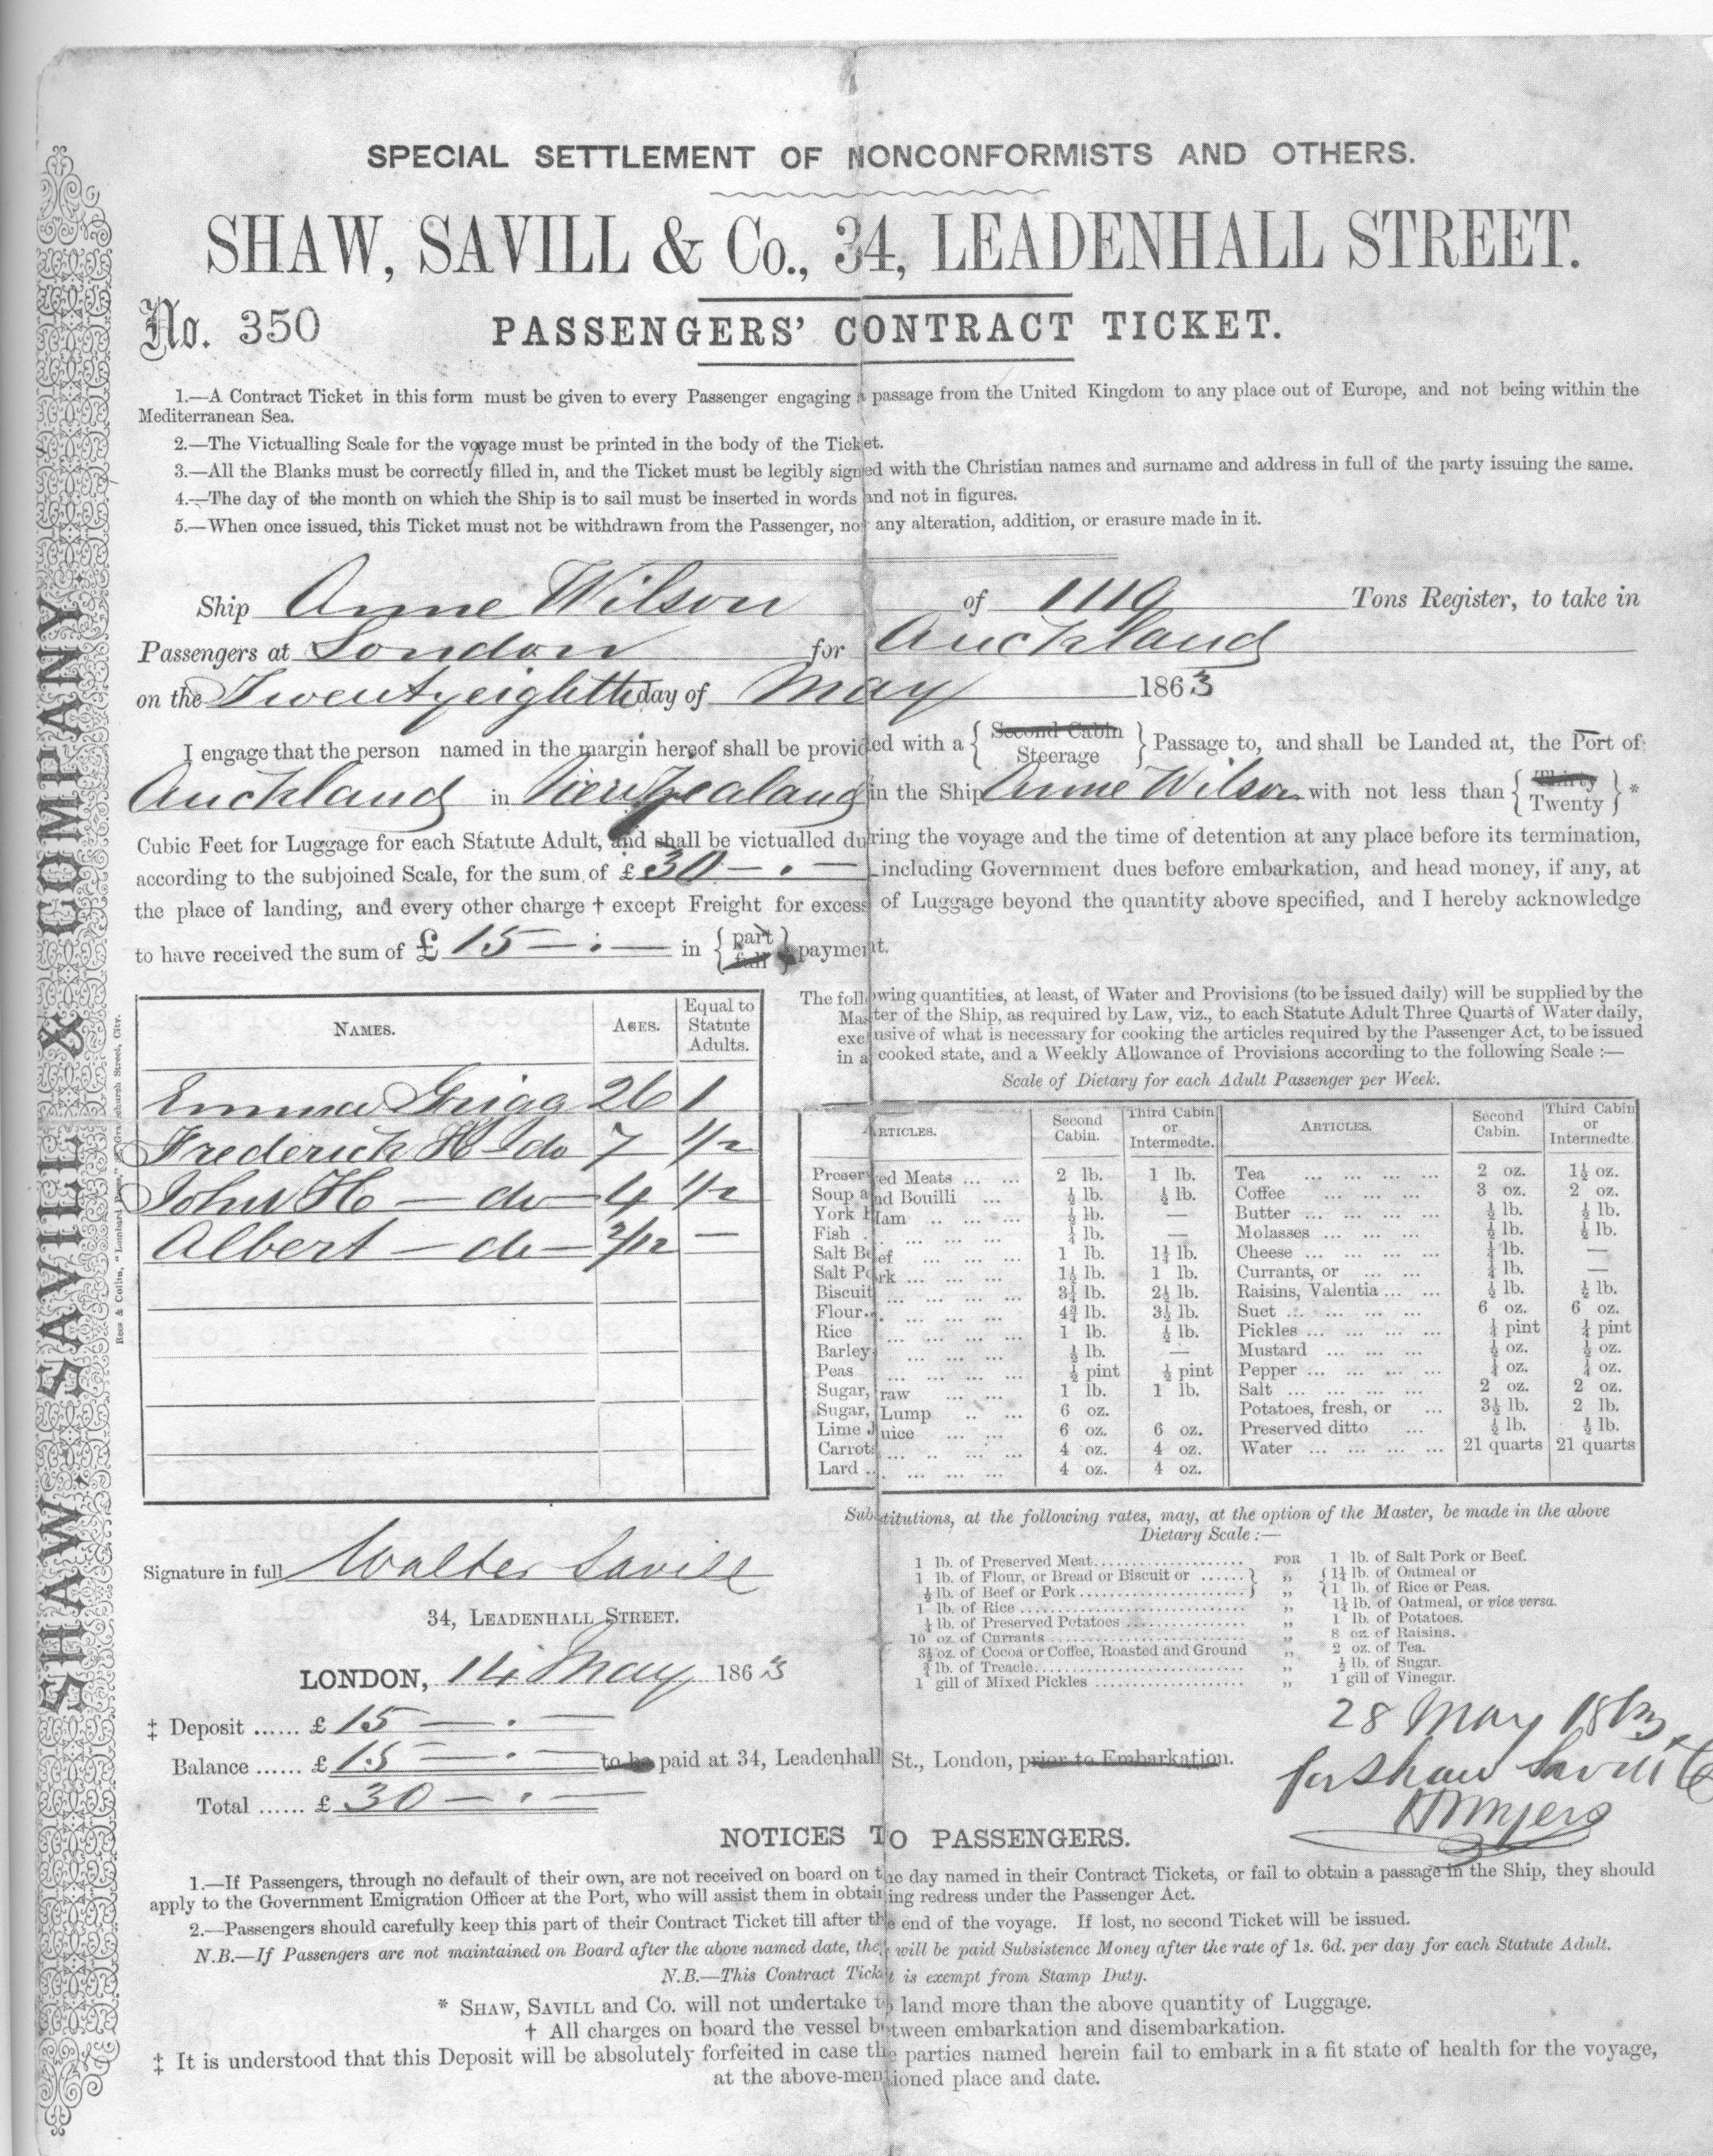 SPECIAL SETTLEMENT OF NONCONFORMISTS AND OTHERS.
SHAW, SAVILL & Co., 34, LEADENHALL STREET.
No. 350 PASSENGERS' CONTRACT TICKET.
1.—A Contract Ticket in this form must be given to every Passenger engaging a passage from the United Kingdom to any place out of Europe, and not being within the
Mediterranean Sea.
2.—The Victualling Scale for the voyage must be printed in the body of the Ticket.
3.—All the Blanks must be correctly filled in, and the Ticket must be legibly signed with the Christian names and surname and address in full of the party issuing the same.
4.—The day of the month on which the Ship is to sail must be inserted in words and not in figures.
5.—When once issued, this Ticket must not be withdrawn from the Passenger, nor any alteration, addition, or erasure made in it.
Ship Anne Wilson of 1119 Tons Register, to take in
Passengers at London for Auckland
on the Twentyeighth day of May 1863
I engage that the person named in the margin hereof shall be provided with a { Second Cabin Steerage } Passage to, and shall be Landed at, the Port of
Auckland in New Zealand in the Ship Anne Wilson with not less than { Thirty Twenty } *
Cubic Feet for Luggage for each Statute Adult, and shall be victualled during the voyage and the time of detention at any place before its termination,
according to the subjoined Scale, for the sum of £ 30 — . — including Government dues before embarkation, and head money, if any, at
the place of landing, and every other charge † except Freight for excess of Luggage beyond the quantity above specified, and I hereby acknowledge
to have received the sum of £ 15 — . — in { part full } payment.
NAMES. AGES. Equal to Statute Adults.
Emma Grigg 26 1
Frederick H — do 7 1/2
John H — do — 4 1/2
Albert — do — 2/12 —
The following quantities, at least, of Water and Provisions (to be issued daily) will be supplied by the
Master of the Ship, as required by Law, viz., to each Statute Adult Three Quarts of Water daily,
exclusive of what is necessary for cooking the articles required by the Passenger Act, to be issued
in a cooked state, and a Weekly Allowance of Provisions according to the following Scale :—
Scale of Dietary for each Adult Passenger per Week.
ARTICLES. Second Cabin. Third Cabin or Intermedte. ARTICLES. Second Cabin. Third Cabin or Intermedte.
Preserved Meats ... ... 2 lb. 1 lb. Tea ... ... ... ... 2 oz. 1½ oz.
Soup and Bouilli ... ½ lb. ½ lb. Coffee ... ... ... 3 oz. 2 oz.
York Ham .. ... ... ½ lb. — Butter ... ... ... ... ½ lb. ½ lb.
Fish ... ... ... ¼ lb. — Molasses ... ... ... ½ lb. ½ lb.
Salt Beef ... ... ... 1 lb. 1¼ lb. Cheese ... ... ... ¼ lb. —
Salt Pork ... ... ... 1½ lb. 1 lb. Currants, or ... ... ¼ lb. —
Biscuit ... ... ... ... 3¾ lb. 2½ lb. Raisins, Valentia ... ... ½ lb. ½ lb.
Flour ... ... ... 4¾ lb. 3½ lb. Suet ... ... ... ... 6 oz. 6 oz.
Rice ... ... ... ... 1 lb. ½ lb. Pickles ... ... ... ... ¼ pint ¼ pint
Barley ... ... ... ½ lb. — Mustard ... ... ... ½ oz. ½ oz.
Peas ... ... ... ... ½ pint ½ pint Pepper ... ... ... ... ¼ oz. ¼ oz.
Sugar, raw ... ... 1 lb. 1 lb. Salt ... ... ... ... 2 oz. 2 oz.
Sugar, Lump .. ... 6 oz. Potatoes, fresh, or ... 3½ lb. 2 lb.
Lime Juice ... ... 6 oz. 6 oz. Preserved ditto ... ½ lb. ½ lb.
Carrots ... .. ... ... 4 oz. 4 oz. Water ... ... ... ... 21 quarts 21 quarts
Lard ... ... ... ... 4 oz. 4 oz.
Substitutions, at the following rates, may, at the option of the Master, be made in the above
Dietary Scale :—
1 lb. of Preserved Meat FOR 1 lb. of Salt Pork or Beef.
1 lb. of Flour, or Bread or Biscuit or } „ { 1¼ lb. of Oatmeal or
½ lb. of Beef or Pork } „ { 1 lb. of Rice or Peas.
1 lb. of Rice „ 1¼ lb. of Oatmeal, or vice versa.
¼ lb. of Preserved Potatoes „ 1 lb. of Potatoes.
10 oz. of Currants „ 8 oz. of Raisins.
3½ oz. of Cocoa or Coffee, Roasted and Ground „ 2 oz. of Tea.
¾ lb. of Treacle „ ½ lb. of Sugar.
1 gill of Mixed Pickles „ 1 gill of Vinegar.
Signature in full Walter Savill
34, LEADENHALL STREET.
LONDON, 14 May 1863
‡ Deposit ...... £ 15 — . —
Balance ...... £ 15 — . — to be paid at 34, Leadenhall St., London, prior to Embarkation.
Total ...... £ 30 — . —
28 May 1863
for Shaw Savill & Co
H Myers
NOTICES TO PASSENGERS.
1.—If Passengers, through no default of their own, are not received on board on the day named in their Contract Tickets, or fail to obtain a passage in the Ship, they should
apply to the Government Emigration Officer at the Port, who will assist them in obtaining redress under the Passenger Act.
2.—Passengers should carefully keep this part of their Contract Ticket till after the end of the voyage. If lost, no second Ticket will be issued.
N.B.—If Passengers are not maintained on Board after the above named date, they will be paid Subsistence Money after the rate of 1s. 6d. per day for each Statute Adult.
N.B.—This Contract Ticket is exempt from Stamp Duty.
* SHAW, SAVILL and Co. will not undertake to land more than the above quantity of Luggage.
† All charges on board the vessel between embarkation and disembarkation.
‡ It is understood that this Deposit will be absolutely forfeited in case the parties named herein fail to embark in a fit state of health for the voyage,
at the above-mentioned place and date.
SHAW, SAVILL & COMPANY
Rees & Collin, "Lombard Press," Gracechurch Street, City.